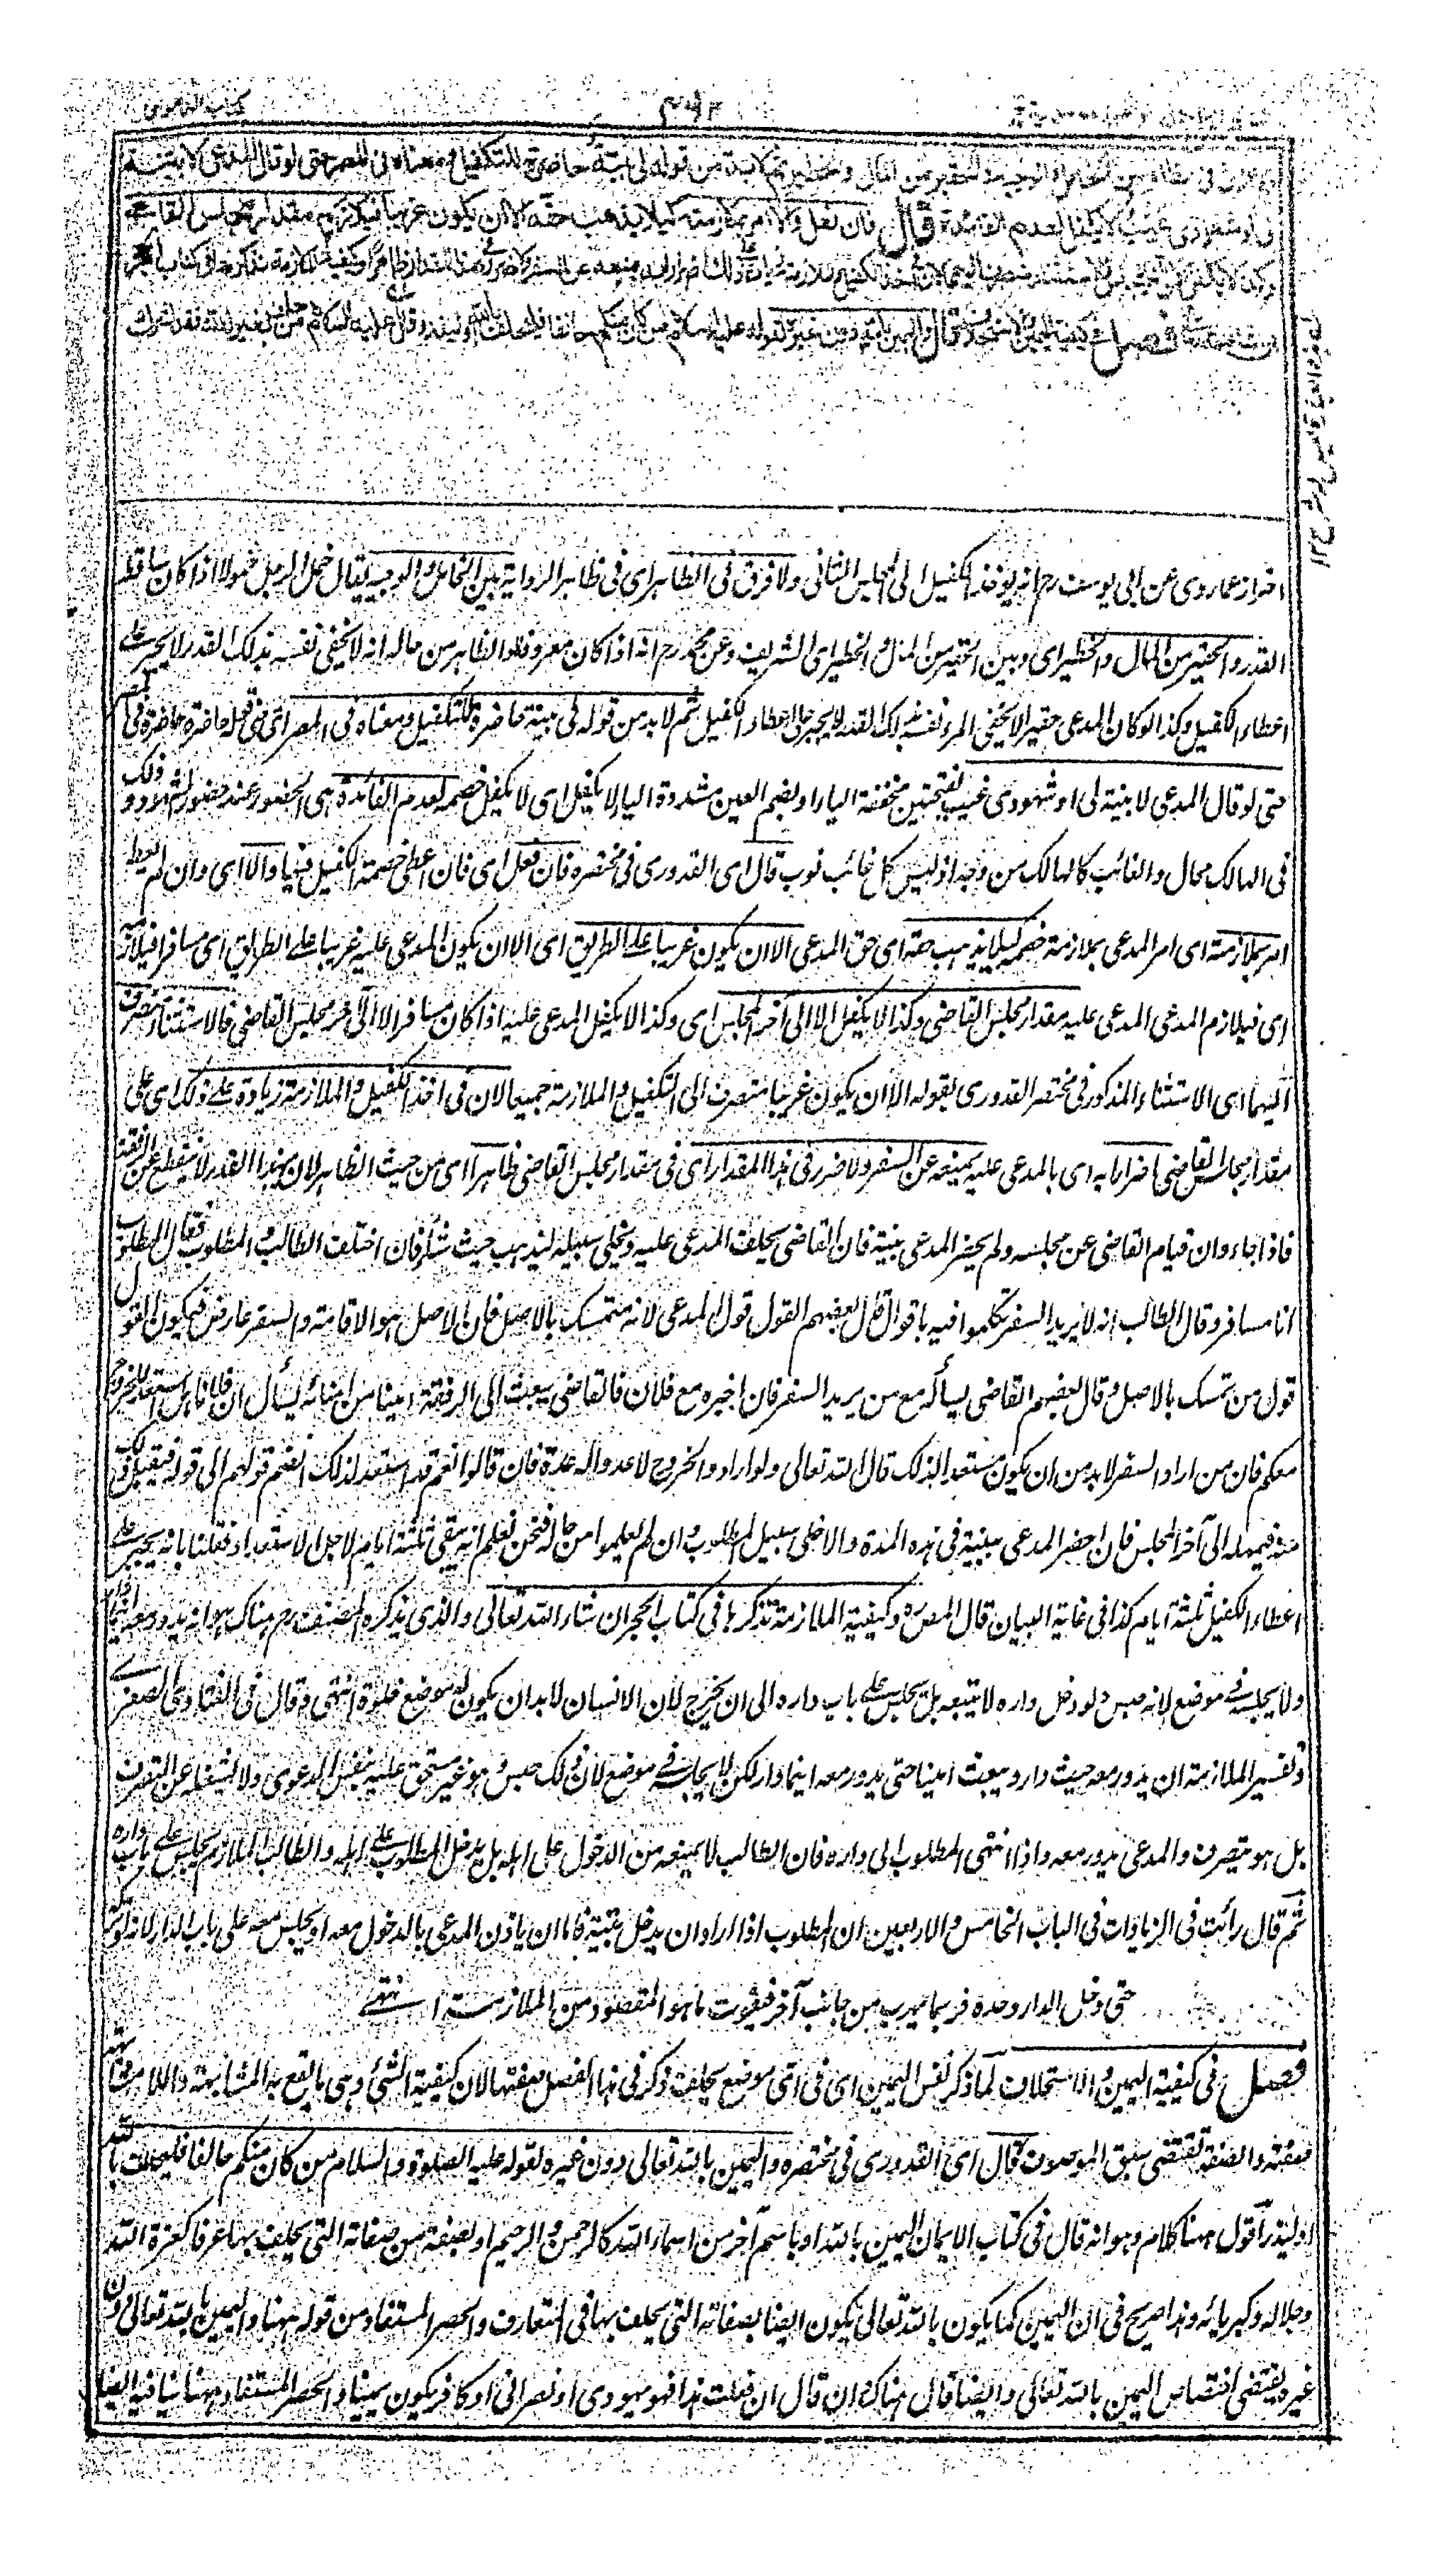 كتاب الدعوى
ثم لابد من قوله لي بينة حاضرة للتكفيل ومعناه في المصر حتى لو قال المدعي لا بينة
لي او شهودي غيب لا يكفل لعدم الفائدة قال فان فعل والا امر بملازمته كيلا يذهب حقه الا ان يكون غريبا فيلازم مقدار مجلس القاضي
وكذا لا يكفل الا الى آخر المجلس فالاستثناء منصرف اليهما لان في اخذ الكفيل والملازمة زيادة على ذلك اضرارا به بمنعه عن السفر ولا ضرر في هذا المقدار ظاهرا وكيفية الملازمة نذكرها في كتاب الحجر
ان شاء الله تعالى فصل في كيفية اليمين والاستحلاف قال واليمين بالله دون غيره لقوله عليه السلام من كان منكم حالفا فليحلف بالله او ليذر وقال عليه السلام من حلف بغير الله فقد اشرك
احتراز عما روي عن ابي يوسف رح انه يؤخذ الكفيل الى المجلس الثاني ولا فرق في الظاهر اي في ظاهر الرواية بين الخامل والوجيه يقال خمل الرجل خمولا اذا كان ساقط
القدر والحقير من المال والخطير اي وبين الحقير من المال والخطير اي الشريف وعن محمد رح انه اذا كان معروفا والظاهر من حاله انه لا يخفي نفسه بذلك القدر لا يجبر على
اعطاء الكفيل وكذا لو كان المدعى حقيرا لا يخفي المرء نفسه بذلك القدر لا يجبر على اعطاء الكفيل ثم لا بد من قوله لي بينة حاضرة للتكفيل ومعناه في المصر اي معنى قوله حاضرة حاضرة في المصر
حتى لو قال المدعي لا بينة لي او شهودي غيب بفتحتين مخففة الياء او بضم الغين مشددة الياء لا يكفل اي لا يكفل خصمه لعدم الفائدة هي الحضور عند حضور الشهود وذلك
في الهالك محال والغائب كالهالك من وجه اذ ليس كل غائب يؤب قال اي القدوري في مختصره فان فعل اي فان اعطى خصمه الكفيل فبها والا اي وان لم يعط
امر بملازمته اي امر المدعي بملازمة خصمه كيلا يذهب حقه اي حق المدعي الا ان يكون غريبا على الطريق اي الا ان يكون المدعى عليه غريبا على الطريق اي مسافرا فيلازمه
اي فيلازم المدعي المدعى عليه مقدار مجلس القاضي وكذا لا يكفل الا الى آخر المجلس اي وكذا لا يكفل المدعى عليه اذا كان مسافرا الا الى آخر مجلس القاضي فالاستثناء منصرف
اليهما اي الاستثناء المذكور في مختصر القدوري بقوله الا ان يكون غريبا منصرف الى التكفيل والملازمة جميعا لان في اخذ الكفيل والملازمة زيادة على ذلك اي على
مقدار مجلس القاضي اضرارا به اي بالمدعى عليه بمنعه عن السفر ولا ضرر في هذا المقدار اي في مقدار مجلس القاضي ظاهرا اي من حيث الظاهر لان بهذا القدر لا ينقطع عن الرفقة
فاذا جاء اوان قيام القاضي عن مجلسه ولم يحضر المدعي ببينة فان القاضي يحلف المدعى عليه ويخلي سبيله ليذهب حيث شاء فان اختلف الطالب والمطلوب فقال المطلوب
انا مسافر وقال الطالب انه لا يريد السفر تكلموا فيه باقوال قال بعضهم القول قول المدعي لانه متمسك بالاصل فان الاصل هو الاقامة والسفر عارض فيكون القول
قول من تمسك بالاصل وقال بعضهم القاضي يسأله مع من يريد السفر فان اخبره مع فلان فالقاضي يبعث الى الرفقة امينا من امنائه يسأل ان فلانا هل استعد للخروج
معكم فان من اراد السفر لا بد من ان يكون مستعدا لذلك قال الله تعالى ولو ارادوا الخروج لاعدوا له عدة فان قالوا نعم قد استعد لذلك انضم قولهم الى قوله فيقبل ذلك
منه فيمهله الى آخر المجلس فان احضر المدعي ببينة في هذه المدة والا خلى سبيل المطلوب وان لم يعلموا من حاله فنحن نعلم انه يبقى ثلثة ايام لاجل الاستعداد فقلنا بانه يجبر على
اعطاء الكفيل ثلثة ايام كذا في غاية البيان قال المص ره وكيفية الملازمة نذكرها في كتاب الحجر ان شاء الله تعالى والذي يذكره المصنف رح هناك هو انه يدور معه اينما دار
ولا يجلسه في موضع لانه حبس ولو دخل داره لا يتبعه بل يجلس على باب داره الى ان يخرج لان الانسان لا بد ان يكون له موضع خلوة انتهى وقال في الفتاوى الصغرى
وتفسير الملازمة ان يدور معه حيث دار ويبعث امينا حتى يدور معه اينما دار لكن لا يجلسه في موضع لان ذلك حبس وهو غير مستحق عليه بنفس الدعوى ولا يشغله عن التصرف
بل هو يتصرف والمدعي يدور معه واذا انتهى المطلوب الى داره فان الطالب لا يمنعه من الدخول على اهله بل يدخل المطلوب على اهله والطالب الملازم يجلس على باب داره
ثم قال رأيت في الزيادات في الباب الخامس والاربعين ان المطلوب اذا اراد ان يدخل بيته فاما ان يأذن المدعي بالدخول معه او يجلس معه على باب الدار لانه لو تركه
حتى دخل الدار وحده فربما يهرب من جانب آخر فيفوت ما هو المقصود من الملازمة انتهى
فصل في كيفية اليمين والاستحلاف لما ذكر نفس اليمين اي في اي موضع يحلف ذكر في هذا الفصل صفتها لان كيفية الشئ وهي ما يقع به المشابهة واللا مشابهة
صفته والصفة تقتضي سبق الموصوف قال اي القدوري في مختصره واليمين بالله تعالى دون غيره لقوله عليه الصلوة والسلام من كان منكم حالفا فليحلف بالله
او ليذر اقول ههنا كلام وهو انه قال في كتاب الايمان اليمين بالله او باسم آخر من اسماء الله كالرحمن والرحيم او بصفة من صفاته التي يحلف بها عرفا كعزة الله
وجلاله وكبريائه وهذا صريح في ان اليمين كما يكون بالله تعالى يكون ايضا بصفاته التي يحلف بها في المتعارف والحصر المستفاد من قوله ههنا واليمين بالله تعالى دون
غيره يقتضي اختصاص اليمين بالله تعالى وايضا قال هناك ان قال ان فعلت هذا فهو يهودي او نصراني او كافر يكون يمينا والحصر المستفاد ههنا ينافيه ايضا